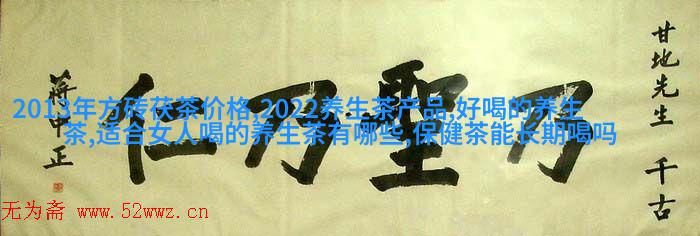 甘地先生 千古
乃聖乃仁
蔣中正
2013年方砖茯茶价格,2022养生茶产品,好喝的养生
茶,适合女人喝的养生茶有哪些,保健茶能长期喝吗
无为斋 www.52wwz.cn